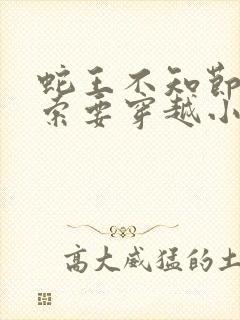 蛇王不知节
索要穿越小
高大威猛的土